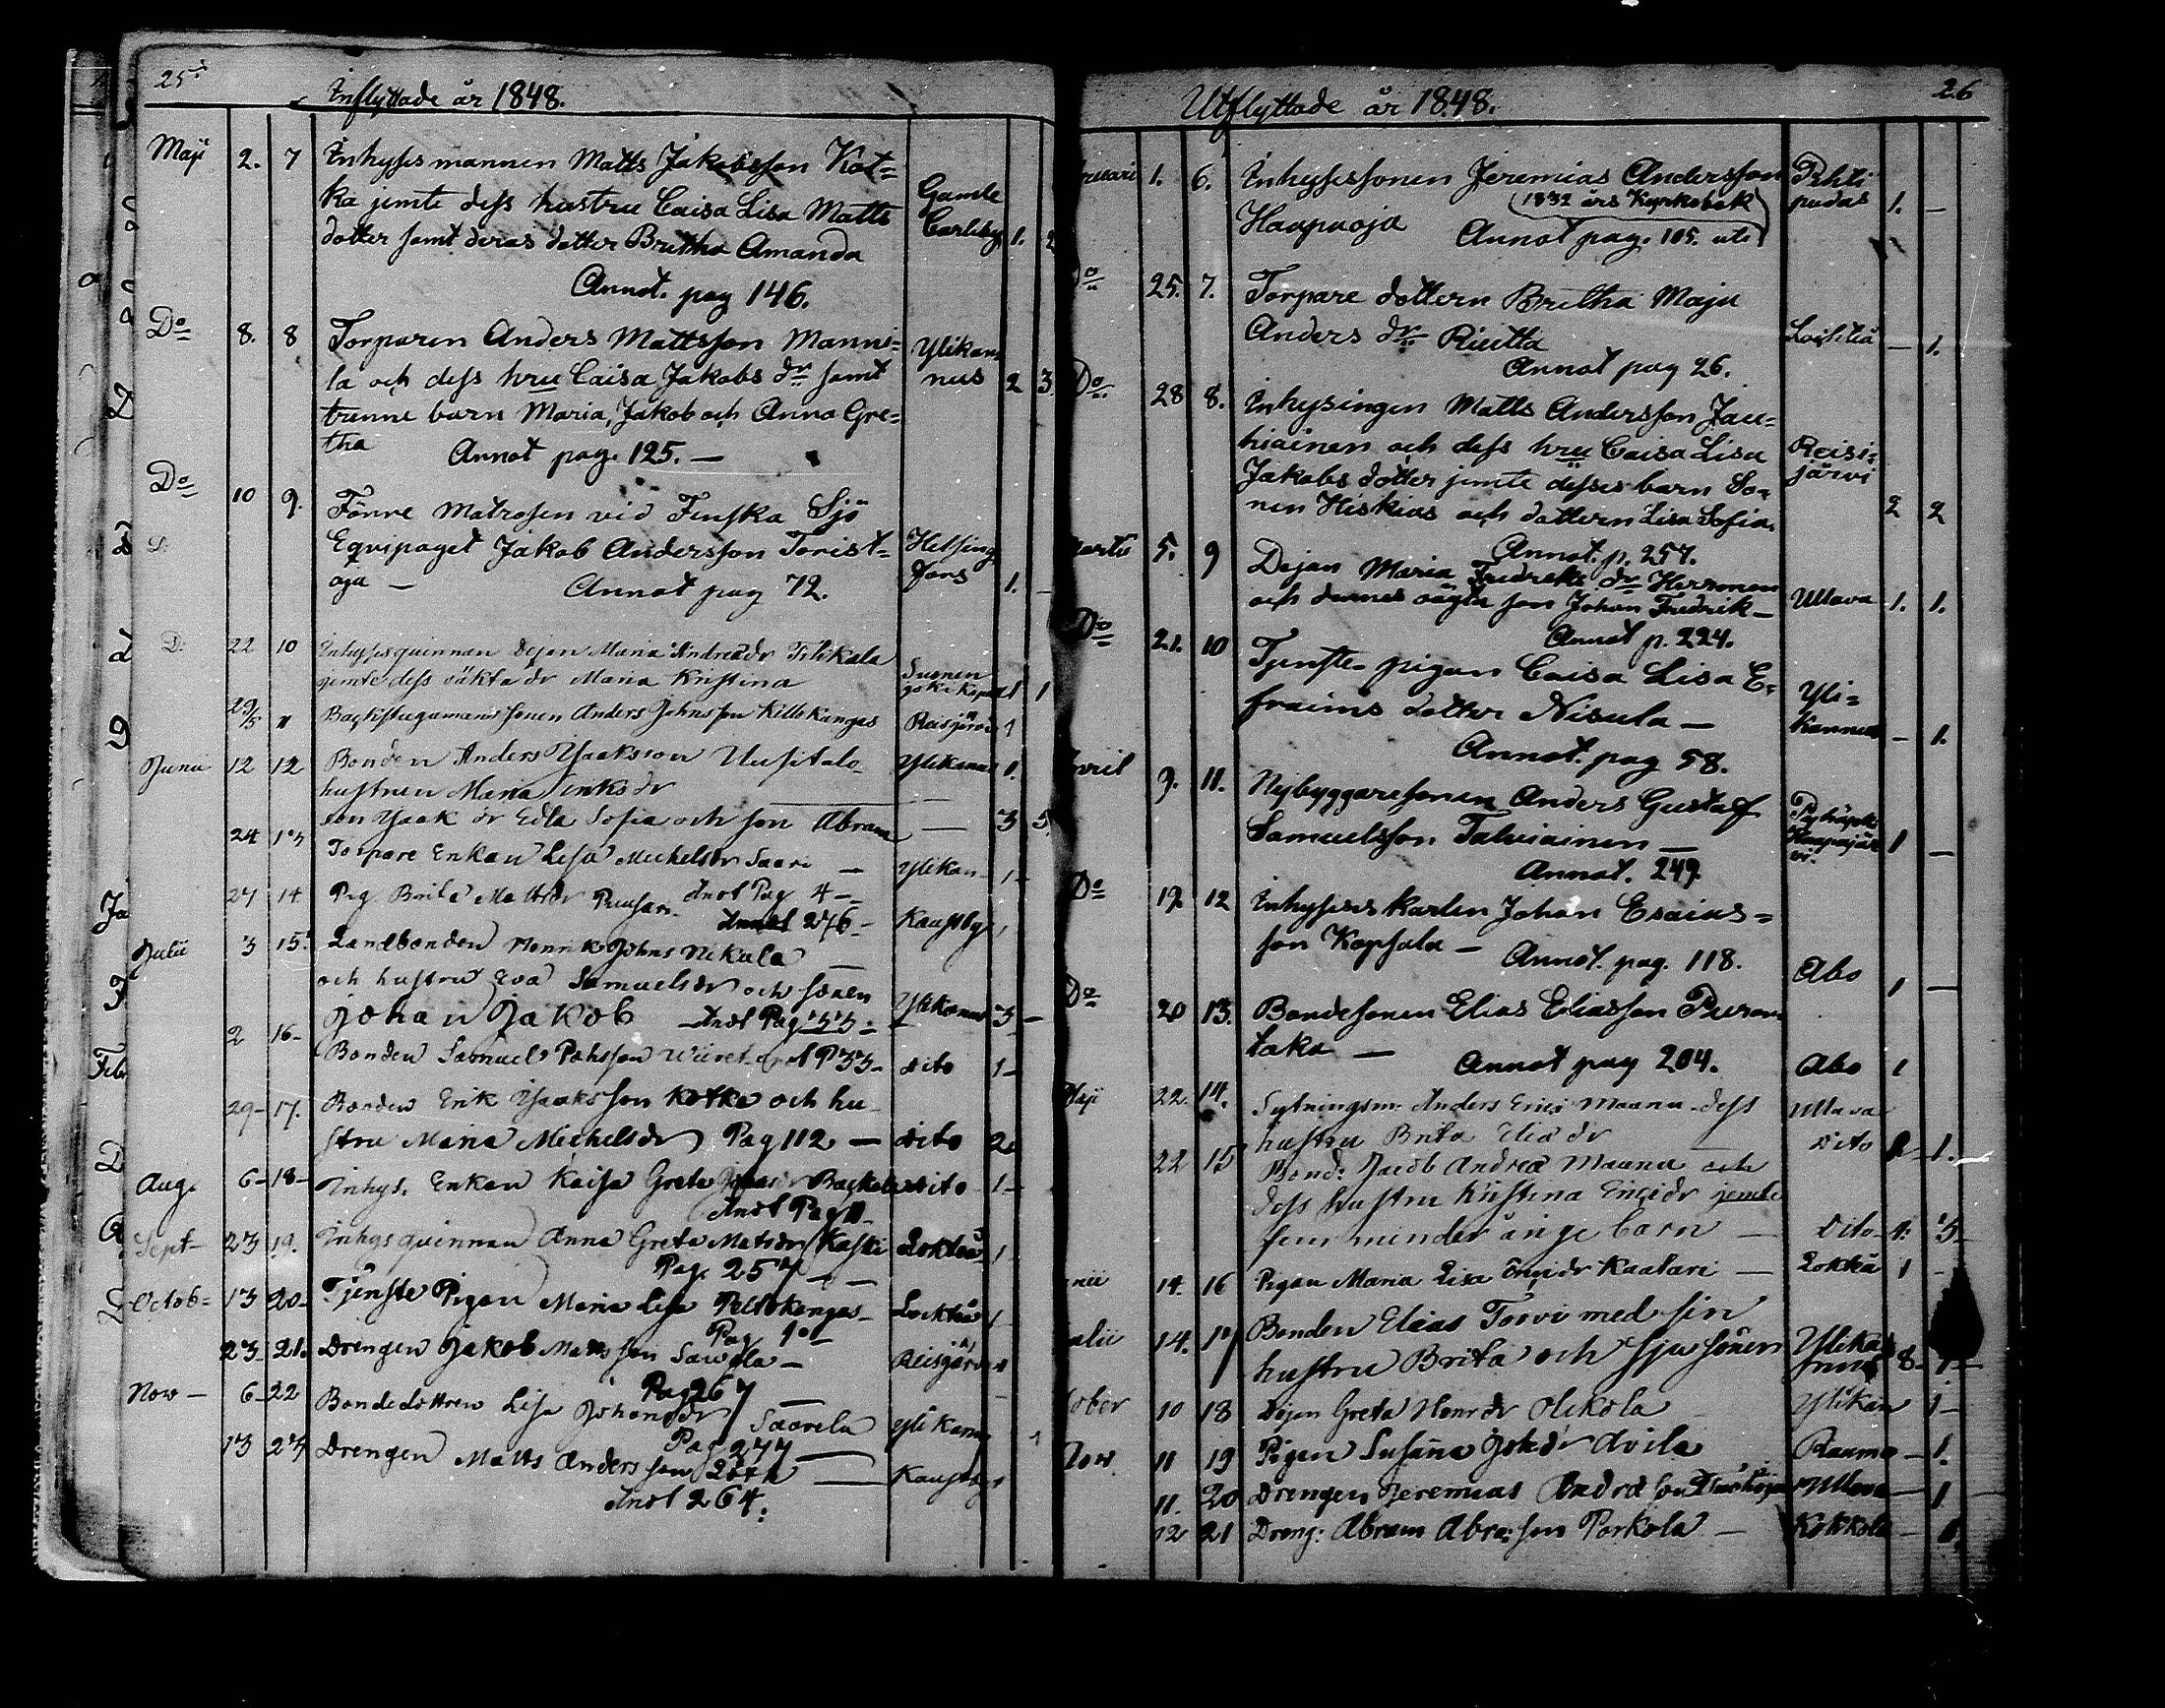 25
Inflyttade år 1848.
Maji 2. 7 Inhyses mannen Matts Jakobsson Kot=
ka jemte dess hustru Caisa Lisa Matts Gamle
dotter samt deras dotter Britha Amanda Carleby 1. 2
Annot. pag 146.
Do 8. 8 Torparen Anders Mattsson Manni= Ylikan=
la och dess hru Caisa Jakobs dr samt nus 2 3.
trenne barn Maria, Jakob och Anna Gre=
tha Annot pag. 125. —
Do 10 9. Förre Matrosen vid Finska Sjö
Equipaget Jakob Andersson Torist= Helsing
oja — Annot pag 72. fors 1. —
D: 22 10 Inhyses quinnan Dejan Maria Andreædr Tilikala
jemte dess oäkta dr Maria Kristina 1 1
29/5 11 Backstugumans sonen Anders Johnsson Kellokangas Reisjärvi 1
Junii 12 12 Bonden Anders Isaksson Uusitalo Ylikanus
hustrun Maria
son Isaak dr Edla Sofia och son Abram — 3 5.
24 13 Torpare Enkan Lisa Michelsdr Saari — Ylikan 1 —
Anot Pag 4 —
27 14 Pig. Brita Mattsdr Kaustby 1
Annot 276 —
Julii 3 15. Landbonden Henrik Johns Nikula
och hustru Eva Samuelsdr och sonen
Johan Jakob Anot Pag 33 Ylikanus 3 —
2 16 — Bonden Samuel P 33 — dito 1 —
29 — 17. Bonden Erik Isaksson Kotka och hu
stru Maria Michelsdr Pag 112 — dito 2
Aug. 6 — 18 — Inhys. Enkan Kaisa Greta dito 1 —
Anot Pag 11
Sept — 23 19. Inhys quinnan Anna Greta Matsdr Kaski Lokteå 1
Pag 257 — —
Octob = 13 20 — Tjenste Pigan Maria Lisa Peltokangas — Lockteå 1
Pag 90
23 — 21. Drengen Jakob Mattsson Sawela — Reisjärvi 1
Pag 267
Now — 6 — 22 Bondedottren Lisa Johansdr Saarela Ylikanus 1
Pag 277
13 23 Drengen Matts Andersson — Kaustby 1
Anot 264.
26
Utflyttade år 1848.
1. 6. Inhysessonen Jeremias Andersson Pehli
(1832 års Kyrkobok) pudas 1. —
Haapaoja Annot pag. 105. uti
Do 25. 7. Torpare dottern Britha Maja
Anders dr Riutta Lochteå — 1.
Annot pag 26.
Do 28 8. Inhysingen Matts Andersson Jau=
hiainen och dess hru Caisa Lisa Reisi=
Jakobs dotter jemte desses barn So= järvi
nen Hiskias och dottern Lisa Sofia. 2 2
Annot. p. 257.
Martii 5. 9 Dejan Maria Fredriks dr Herronen
och dennes oägta son Johan Fredrik — Ullava 1. 1.
Annot p. 224.
Do 21. 10 Tjenste pigan Caisa Lisa E= Yli=
fraims dotter Nisula — Kannus — 1.
Annot. pag 58.
April 9. 11. Nybyggaresonen Anders Gustaf
Samuelsson Talviainen — 1 —
Annot. 249.
Do 19. 12 Inhyseskarlen Johan Esaias=
son Kopsala — Annot. pag. 118. Abo 1 —
Do 20 13. Bondesonen Elias Eliasson Puron
taka — Annot pag 204. Abo 1
22. 14. Sytningsm. Anders Erics Maunu dess Ullava
hustru Brita Elia dr dito 1 1.
22 15 Bond: Jacob Andreæ Maunu och
dess hustru Kristina Ericidr jemte
fem minder ånge barn — dito 3 —
14. 16 Pigan Maria Lisa Ericidr Kaatari — Lokteå 1 —
14. 17 Bonden Elias Torvi med sin
hustru Brita och sju söner Ylikannus 8 — 1 —
10 18 Dejan Greta Henr dr Olikola Ylikan 1 —
Now 11 19 Pigan Susana Joh dr Avila Rauma — 1.
11. 20 Drengen Jeremias Andræson Ullava — 1
12 21 Dreng: Abram Abra: son Porkola — Kokkola — 1.